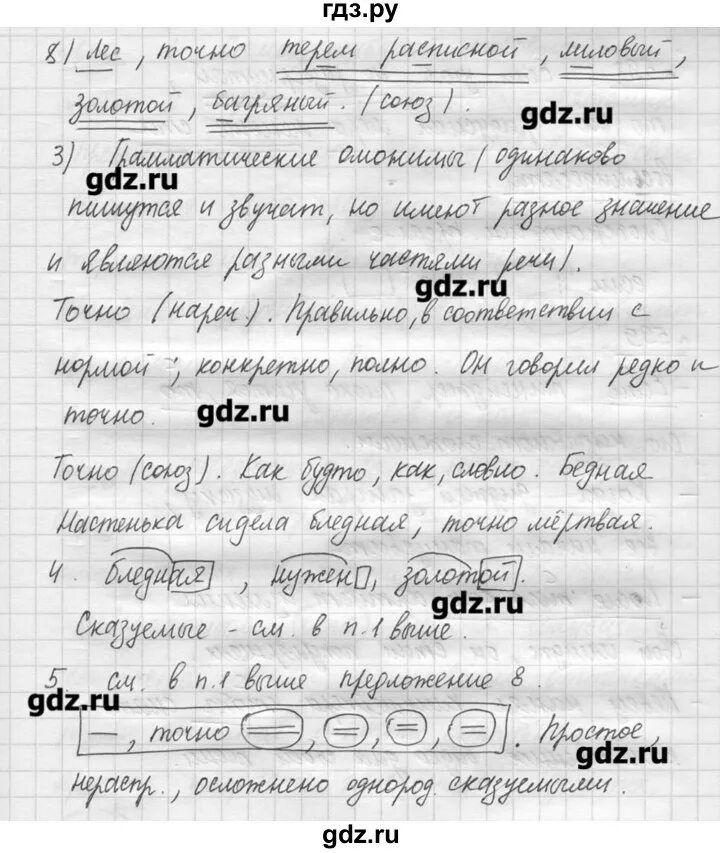 гдз.ру
8) Лес, точно терем расписной, лиловый,
золотой, багряный. (союз).
gdz.ru
3) Грамматические омонимы (одинаково
gdz.ru
пишутся и звучат, но имеют разное значение
и являются разными частями речи).
gdz.ru
Точно (нареч.). Правильно, в соответствии с
нормой; конкретно, полно. Он говорил редко и
точно.
gdz.ru
Точно (союз). Как будто, как, словно. Бедная
Настенька сидела бледная, точно мёртвая.
4. бледная, нужен, золотой.
gdz.ru
Сказуемые - см. в п.1 выше.
5 см. в п.1 выше предложение 8.
gdz.ru
, точно , , , . Простое,
gdz.ru
нераспр., осложнено однород. сказуемыми.
gdz.ru